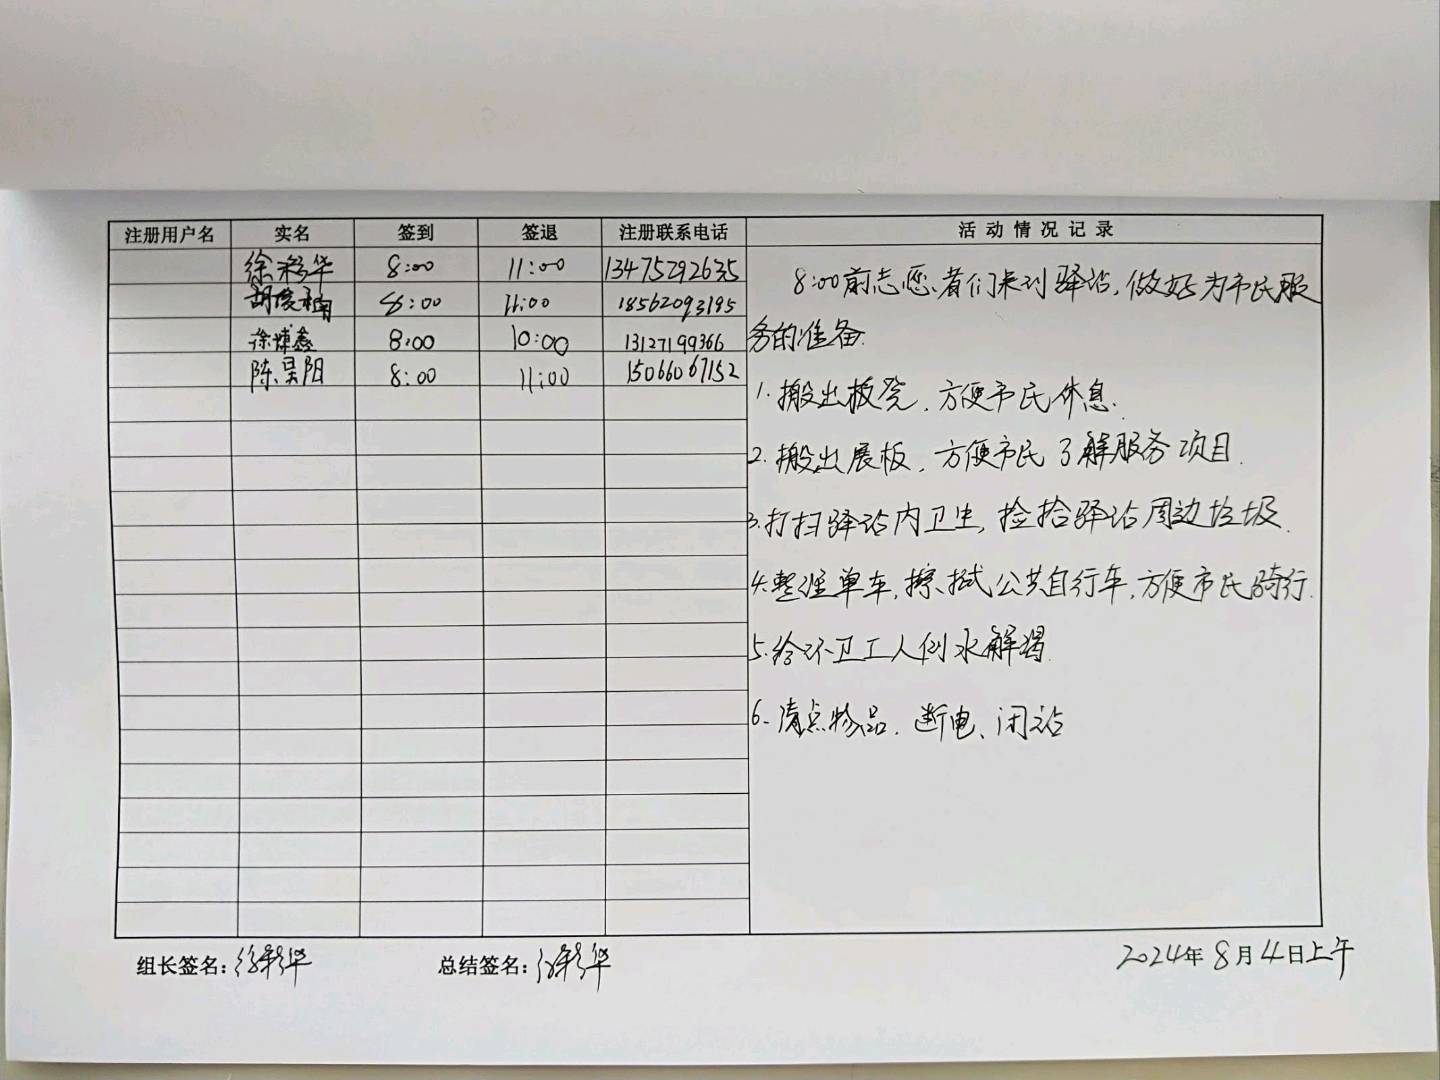 注册用户名 实名 签到 签退 注册联系电话 活动情况记录
徐彩华 8:00 11:00 13475292635
胡俊 8:00 11:00 18562093195
徐 鑫 8:00 10:00 13127199366
陈昊阳 8:00 11:00 15066067152
8:00前志愿者们来到驿站,做好为市民服
务的准备.
1.搬出板凳,方便市民休息.
2.搬出展板,方便市民了解服务项目.
3.打扫驿站内卫生,捡拾驿站周边垃圾.
4.整理单车,擦拭公共自行车,方便市民骑行.
5.给环卫工人倒水解渴.
6.清点物品.断电、闭站
组长签名:徐彩华 总结签名:徐彩华 2024年8月4日上午